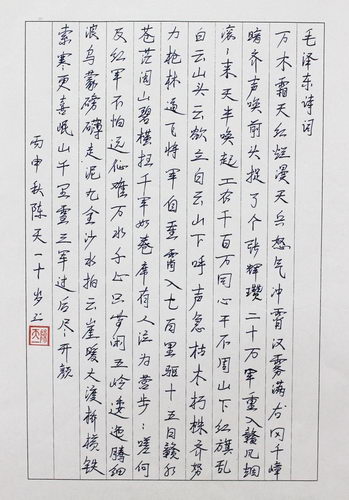 毛泽东诗词
万木霜天红烂漫天兵怒气冲霄汉雾满龙冈千嶂
暗齐声唤前头捉了个张辉瓒二十万军重入赣风烟
滚〻来天半唤起工农千百万同心干不周山下红旗乱
白云山头云欲立白云山下呼声急枯木朽株齐努
力枪林逼飞将军自重霄入七百里驱十五日赣水
苍茫闽山碧横扫千军如卷席有人泣为营步〻嗟何
及红军不怕远征难万水千山只等闲五岭逶迤腾细
浪乌蒙磅礴走泥丸金沙水拍云崖暖大渡桥横铁
索寒更喜岷山千里雪三军过后尽开颜
丙申秋陈天一十岁书